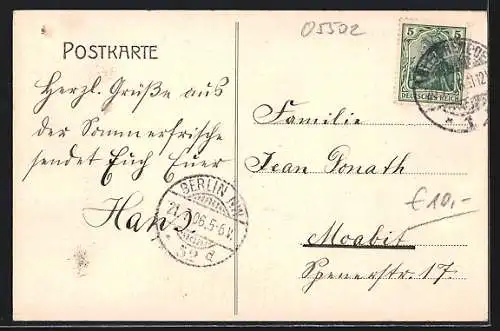 05502
POSTKARTE
5 5
DEUTSCHES REICH
Herzl. Grüße aus
der Sommerfrische
sendet Euch Euer
Hans.
BERLIN NW
21. 06.5-6V.
52 d
Familie
Jean Donath
€10,-
Moabit
Spenerstr. 17.